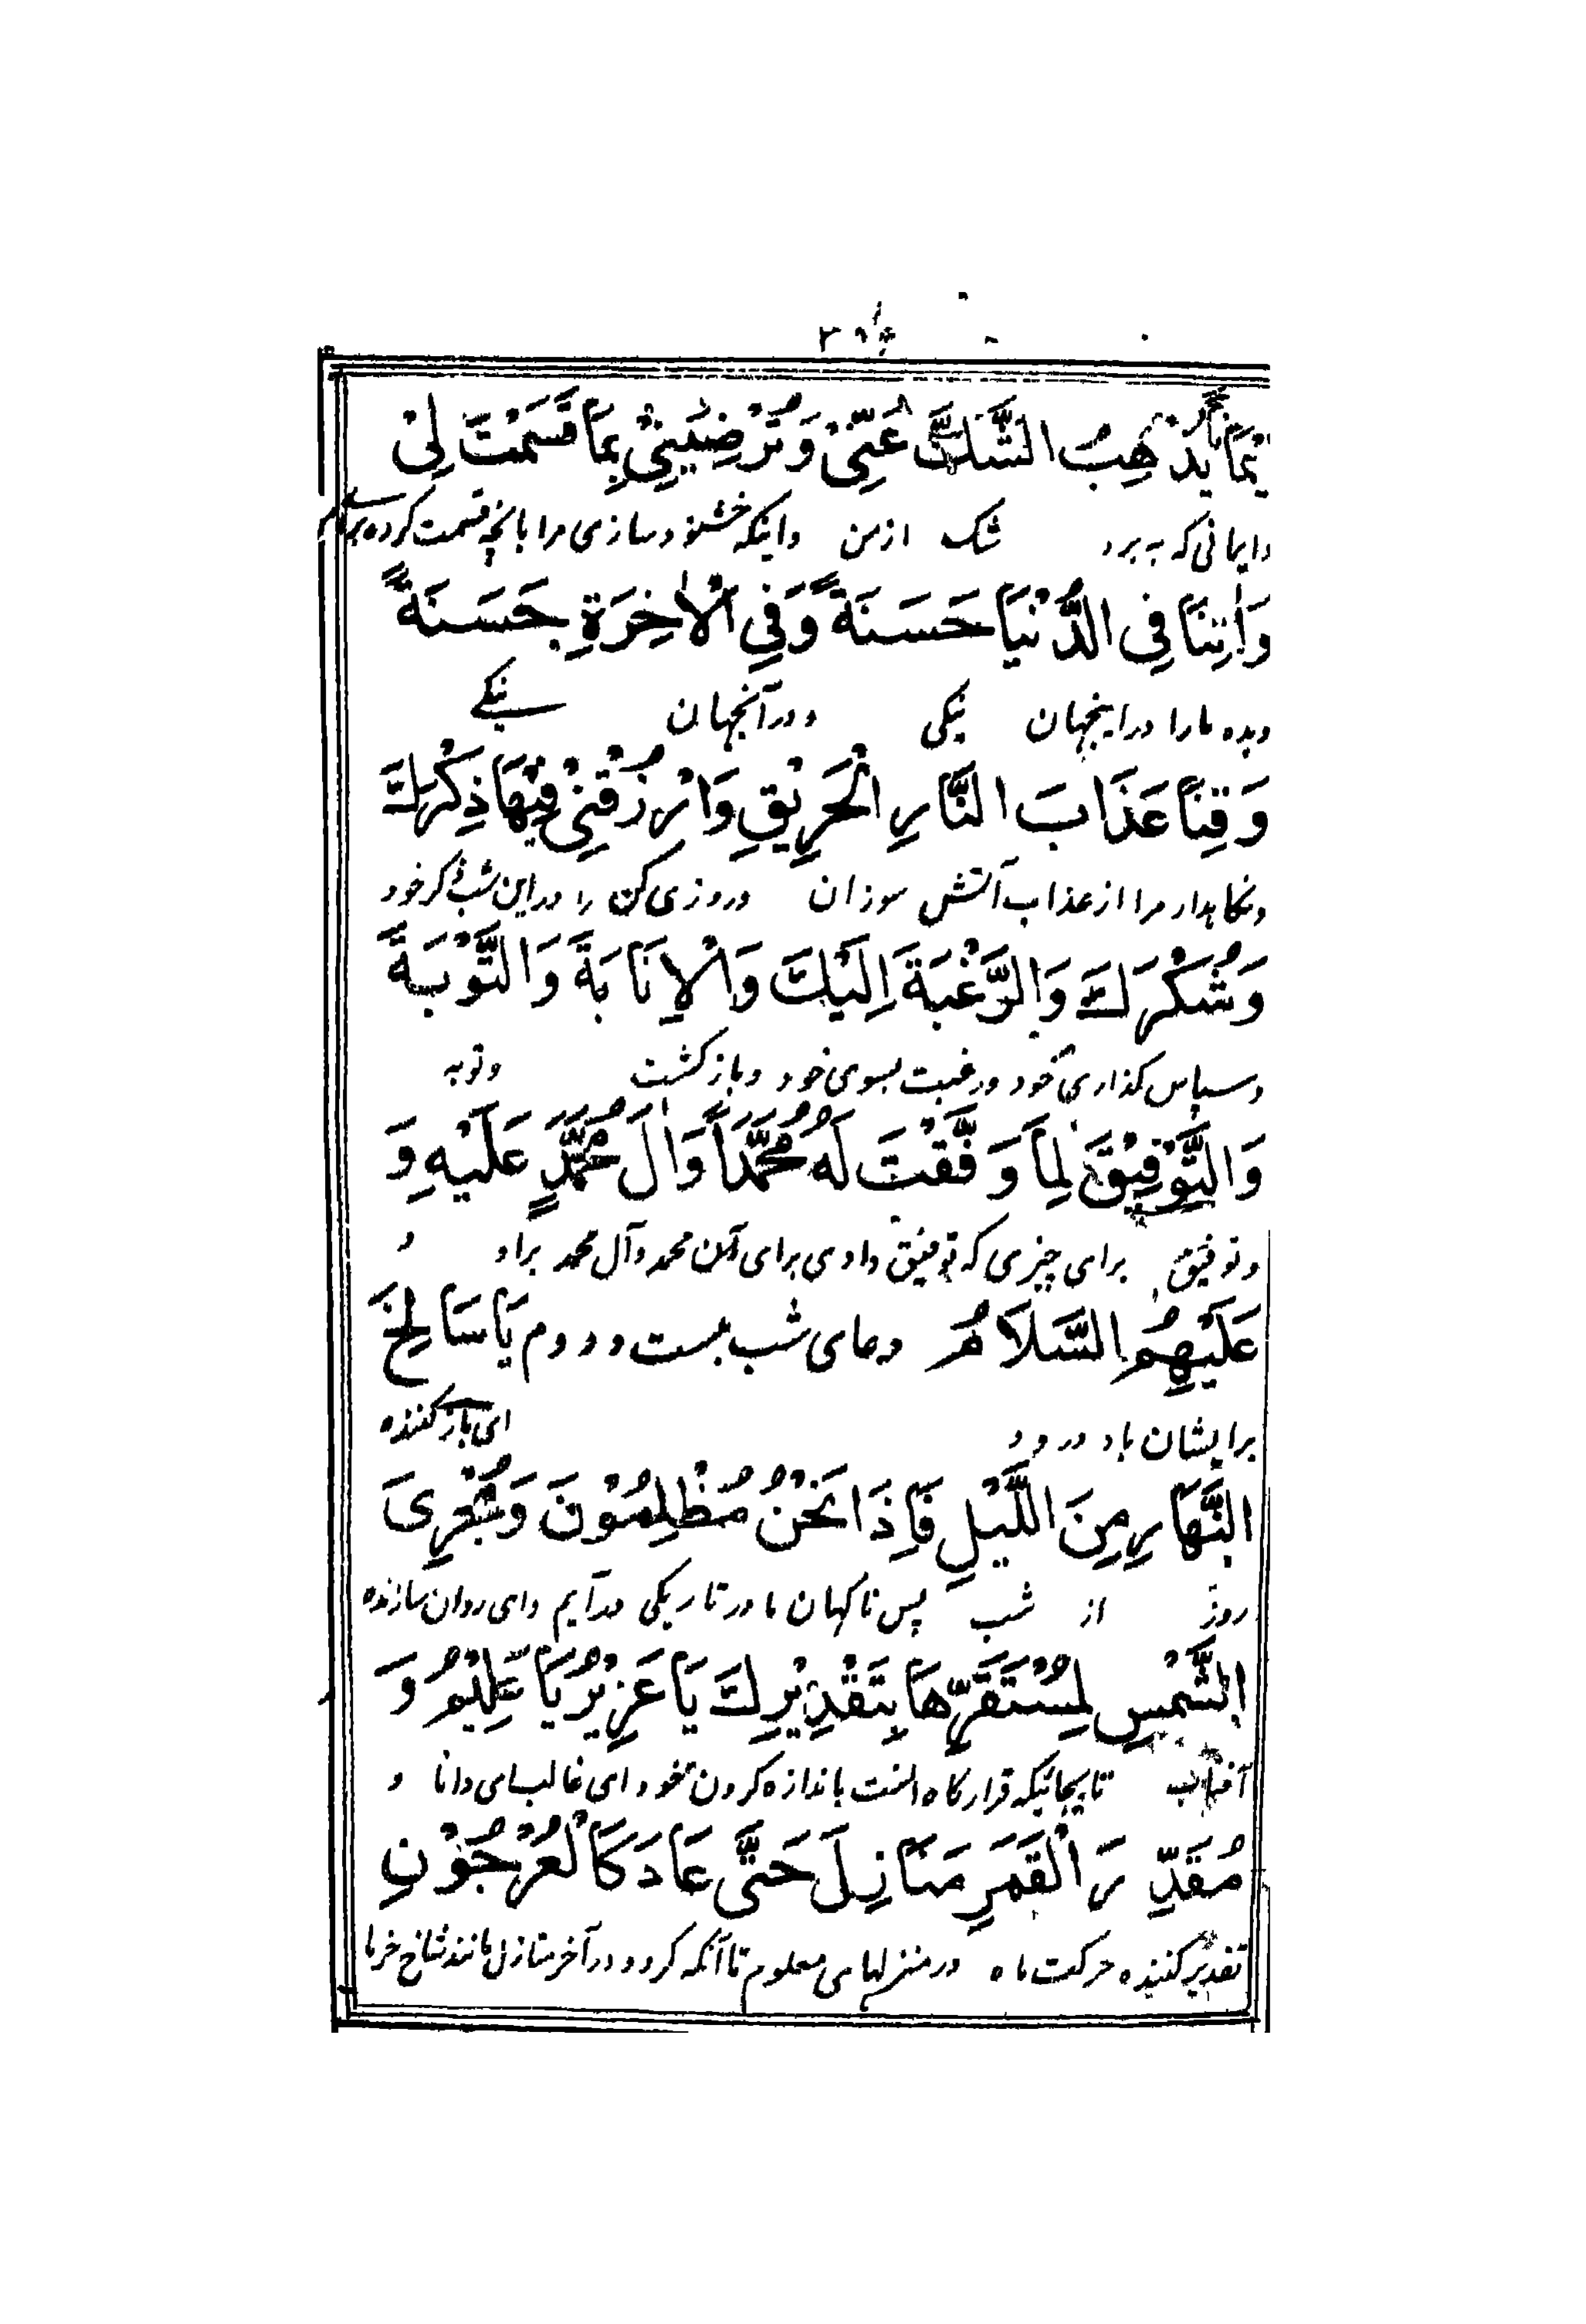 یْمَانًا یُّذْهِبُ الشَّكَّ عَنِّیْ وَ تُرْضِیَنِیْ بِمَا قَسَمْتَ لِیْ
وایمانی که ببرد شک ازمن واینکه خشنود سازی مرا بانچه قسمت کرده برایم
وَاٰتِنَا فِی الدُّنْیَا حَسَنَةً وَّفِی الْاٰخِرَةِ حَسَنَةً
وبده مارا دراینجهان نیکی ودرآنجهان نیکے
وَقِنَا عَذَابَ النَّارِ الْحَرِیْقِ وَارْزُقْنِیْ فِیْهَا ذِكْرَكَ
ونگاہدار مرا از عذاب آتش سوزان وروزی کن را دراین شب ذکر خود
وَشُكْرَكَ وَالرَّغْبَةَ اِلَیْكَ وَالْاِنَابَةَ وَالتَّوْبَةَ
وسپاس گذاری خود ورغبت بسوی خود وبازگشت وتوبه
وَالتَّوْفِیْقَ لِمَا وَفَّقْتَ لَهُ مُحَمَّدًا وَّاٰلَ مُحَمَّدٍ عَلَیْهِ وَ
وتوفیق برای چیزی که توفیق دادی برای آن محمد وآل محمد براو و
عَلَیْهِمُ السَّلَامُ دعای شب بیست ودوم یَا سَالِخَ
برایشان باد درود ای بازکننده
النَّهَارِ مِنَ اللَّیْلِ فَاِذَا نَحْنُ مُظْلِمُوْنَ وَمُجْرِیَ
روز از شب پس ناگهان ما درتاریکی درآیم وای روان سازنده
الشَّمْسِ لِمُسْتَقَرِّهَا بِتَقْدِیْرِكَ یَا عَزِیْزُ یَا عَلِیْمُ وَ
آفتاب تابجائیکه قرارگاه اوست باندازه کردن خود ای غالب ای دانا و
مُقَدِّرَ الْقَمَرِ مَنَازِلَ حَتّٰی عَادَ كَالْعُرْجُوْنِ
تقدیر کننده حرکت ماه در منزلهای معلوم تاآنکه گردد درآخر منازل مانند شاخ خرما